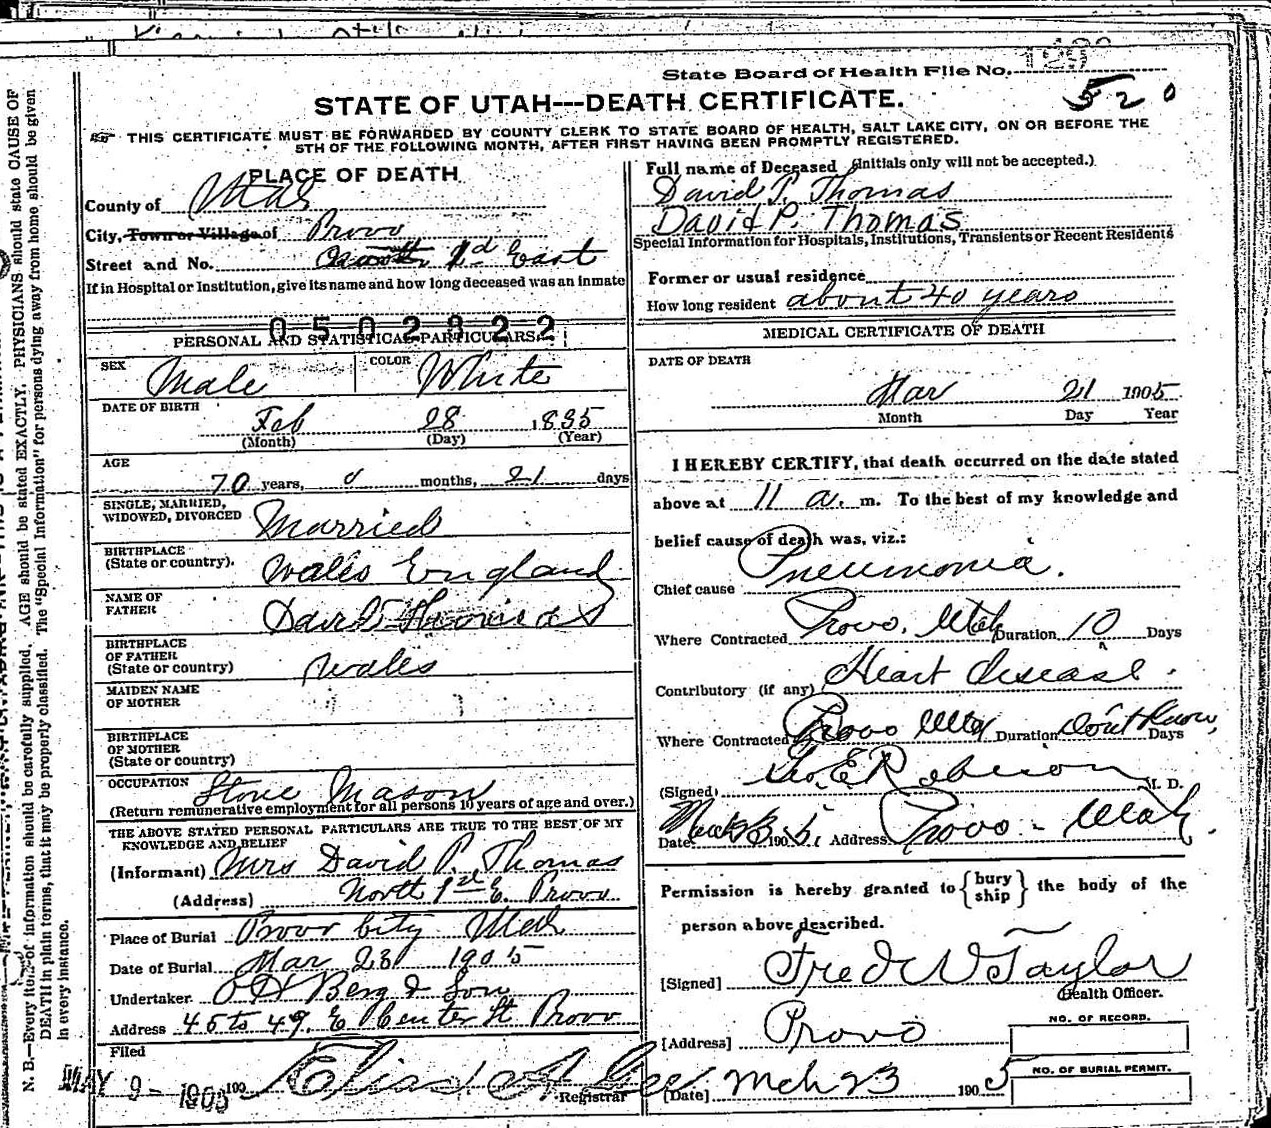 State Board of Health File No. 129
520
STATE OF UTAH---DEATH CERTIFICATE.
☞ THIS CERTIFICATE MUST BE FORWARDED BY COUNTY CLERK TO STATE BOARD OF HEALTH, SALT LAKE CITY, ON OR BEFORE THE
5TH OF THE FOLLOWING MONTH, AFTER FIRST HAVING BEEN PROMPTLY REGISTERED.
PLACE OF DEATH
County of Utah
City, Town or Village of Provo
Street and No. North 1st East
If in Hospital or Institution, give its name and how long deceased was an inmate
0502822
PERSONAL AND STATISTICAL PARTICULARS.
SEX Male COLOR White
DATE OF BIRTH Feb 28 1835
(Month) (Day) (Year)
AGE
70 years, 0 months, 21 days
SINGLE, MARRIED,
WIDOWED, DIVORCED Married
BIRTHPLACE
(State or country). Wales England
NAME OF
FATHER David Thomas
BIRTHPLACE
OF FATHER
(State or country) Wales
MAIDEN NAME
OF MOTHER
BIRTHPLACE
OF MOTHER
(State or country)
OCCUPATION Stone Mason
(Return remunerative employment for all persons 10 years of age and over.)
THE ABOVE STATED PERSONAL PARTICULARS ARE TRUE TO THE BEST OF MY
KNOWLEDGE AND BELIEF
(Informant) Mrs David P. Thomas
(Address) North 1st E. Provo
Place of Burial Provo City Utah
Date of Burial Mar 23 1905
Undertaker. O H Berg & Son
Address 45 to 49. E Center St Provo
Filed
MAY 9-1905 190 Elias A Gee
Registrar
Full name of Deceased (Initials only will not be accepted.)
David P. Thomas
David P. Thomas
Special Information for Hospitals, Institutions, Transients or Recent Residents
Former or usual residence
How long resident about 40 years
MEDICAL CERTIFICATE OF DEATH
DATE OF DEATH
Mar 21 1905
Month Day Year
I HEREBY CERTIFY, that death occurred on the date stated
above at 11 a. m. To the best of my knowledge and
belief cause of death was, viz.:
Chief cause Pneumonia.
Where Contracted Provo, Utah Duration 10 Days
Contributory (if any) Heart disease.
Where Contracted Provo Utah Duration Don't Know, Days
(Signed) Geo. E Robison M. D.
Date 1905. Address Provo - Utah.
Permission is hereby granted to { bury ship } the body of the
person above described.
[Signed] Fred W Taylor
Health Officer.
[Address] Provo
[Date] Mch 23 1905
NO. OF RECORD.
NO. OF BURIAL PERMIT.
N. B.—Every item of information should be carefully supplied. AGE should be stated EXACTLY. PHYSICIANS should state CAUSE OF
DEATH in plain terms, that it may be properly classified. The "Special Information" for persons dying away from home should be given
in every instance.